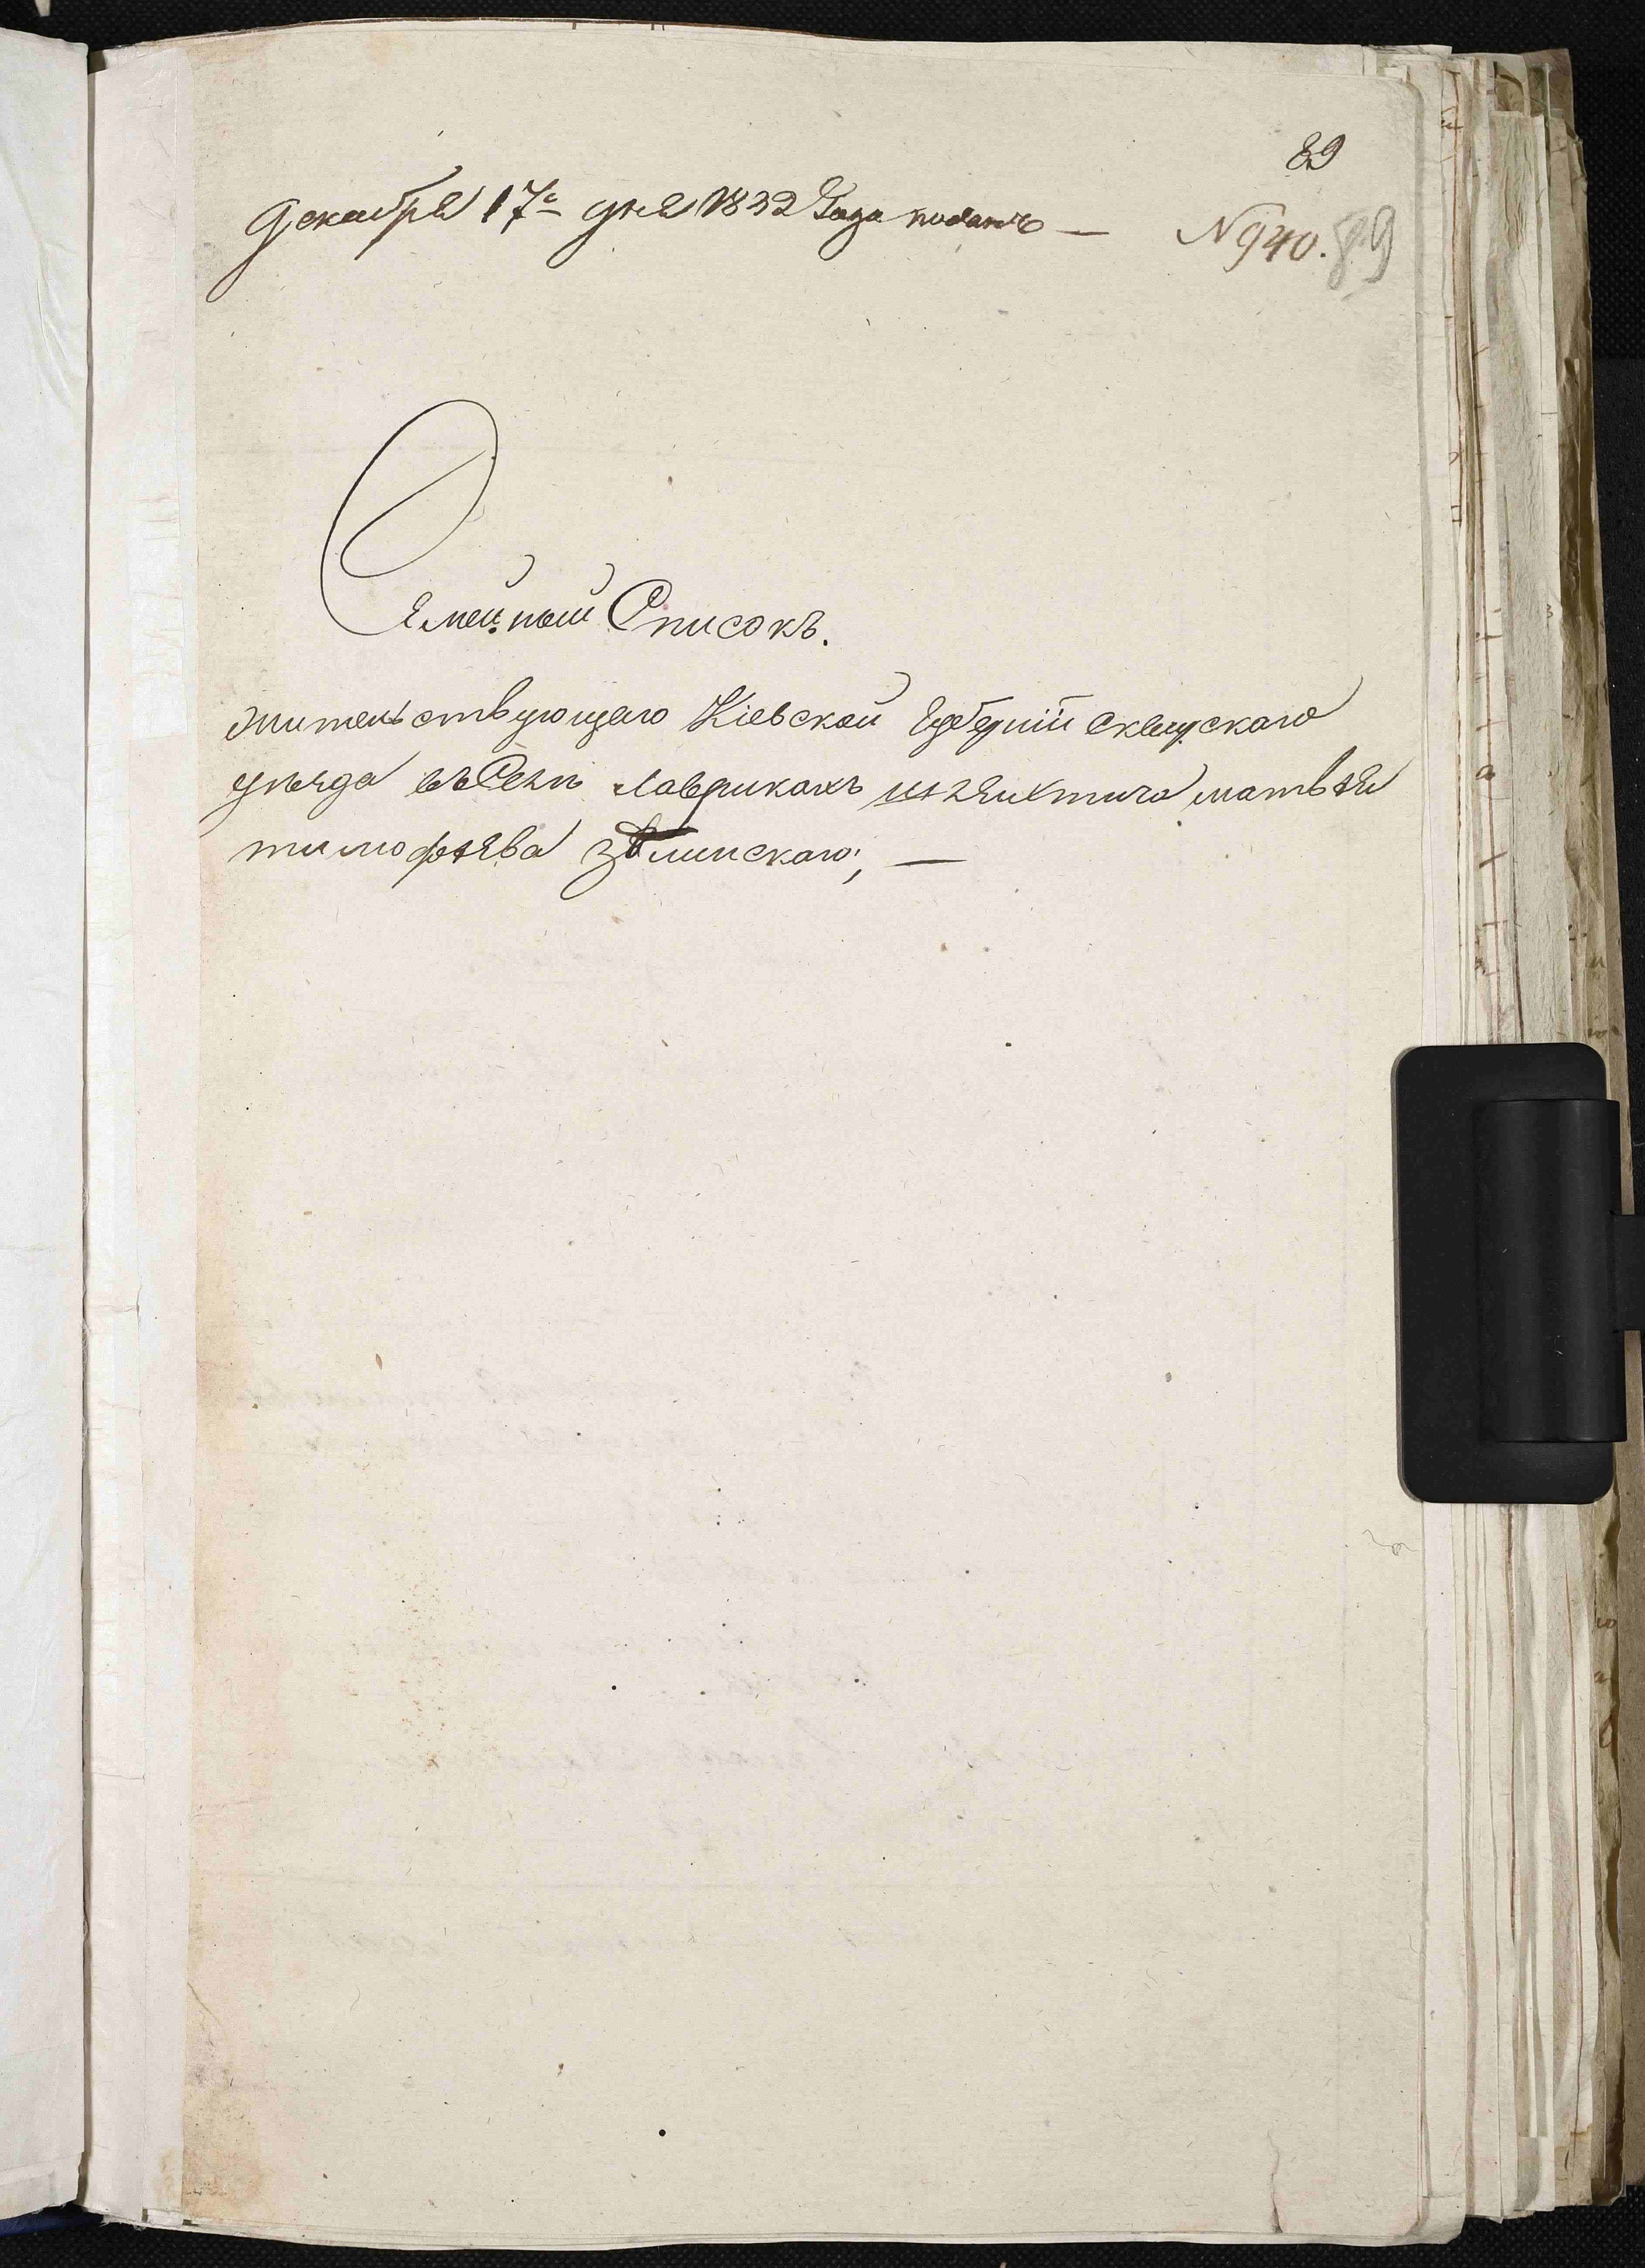 89
Декабря 17го дня 1832 Года поданъ —
N 940. 89
Семейный Списокъ.
жительствующаго Кіевской Губерніи сквирскаго
уезда въ Селе Лаврикахъ шляхтича матвѣя
тимофѣева зѣлинскаго; —